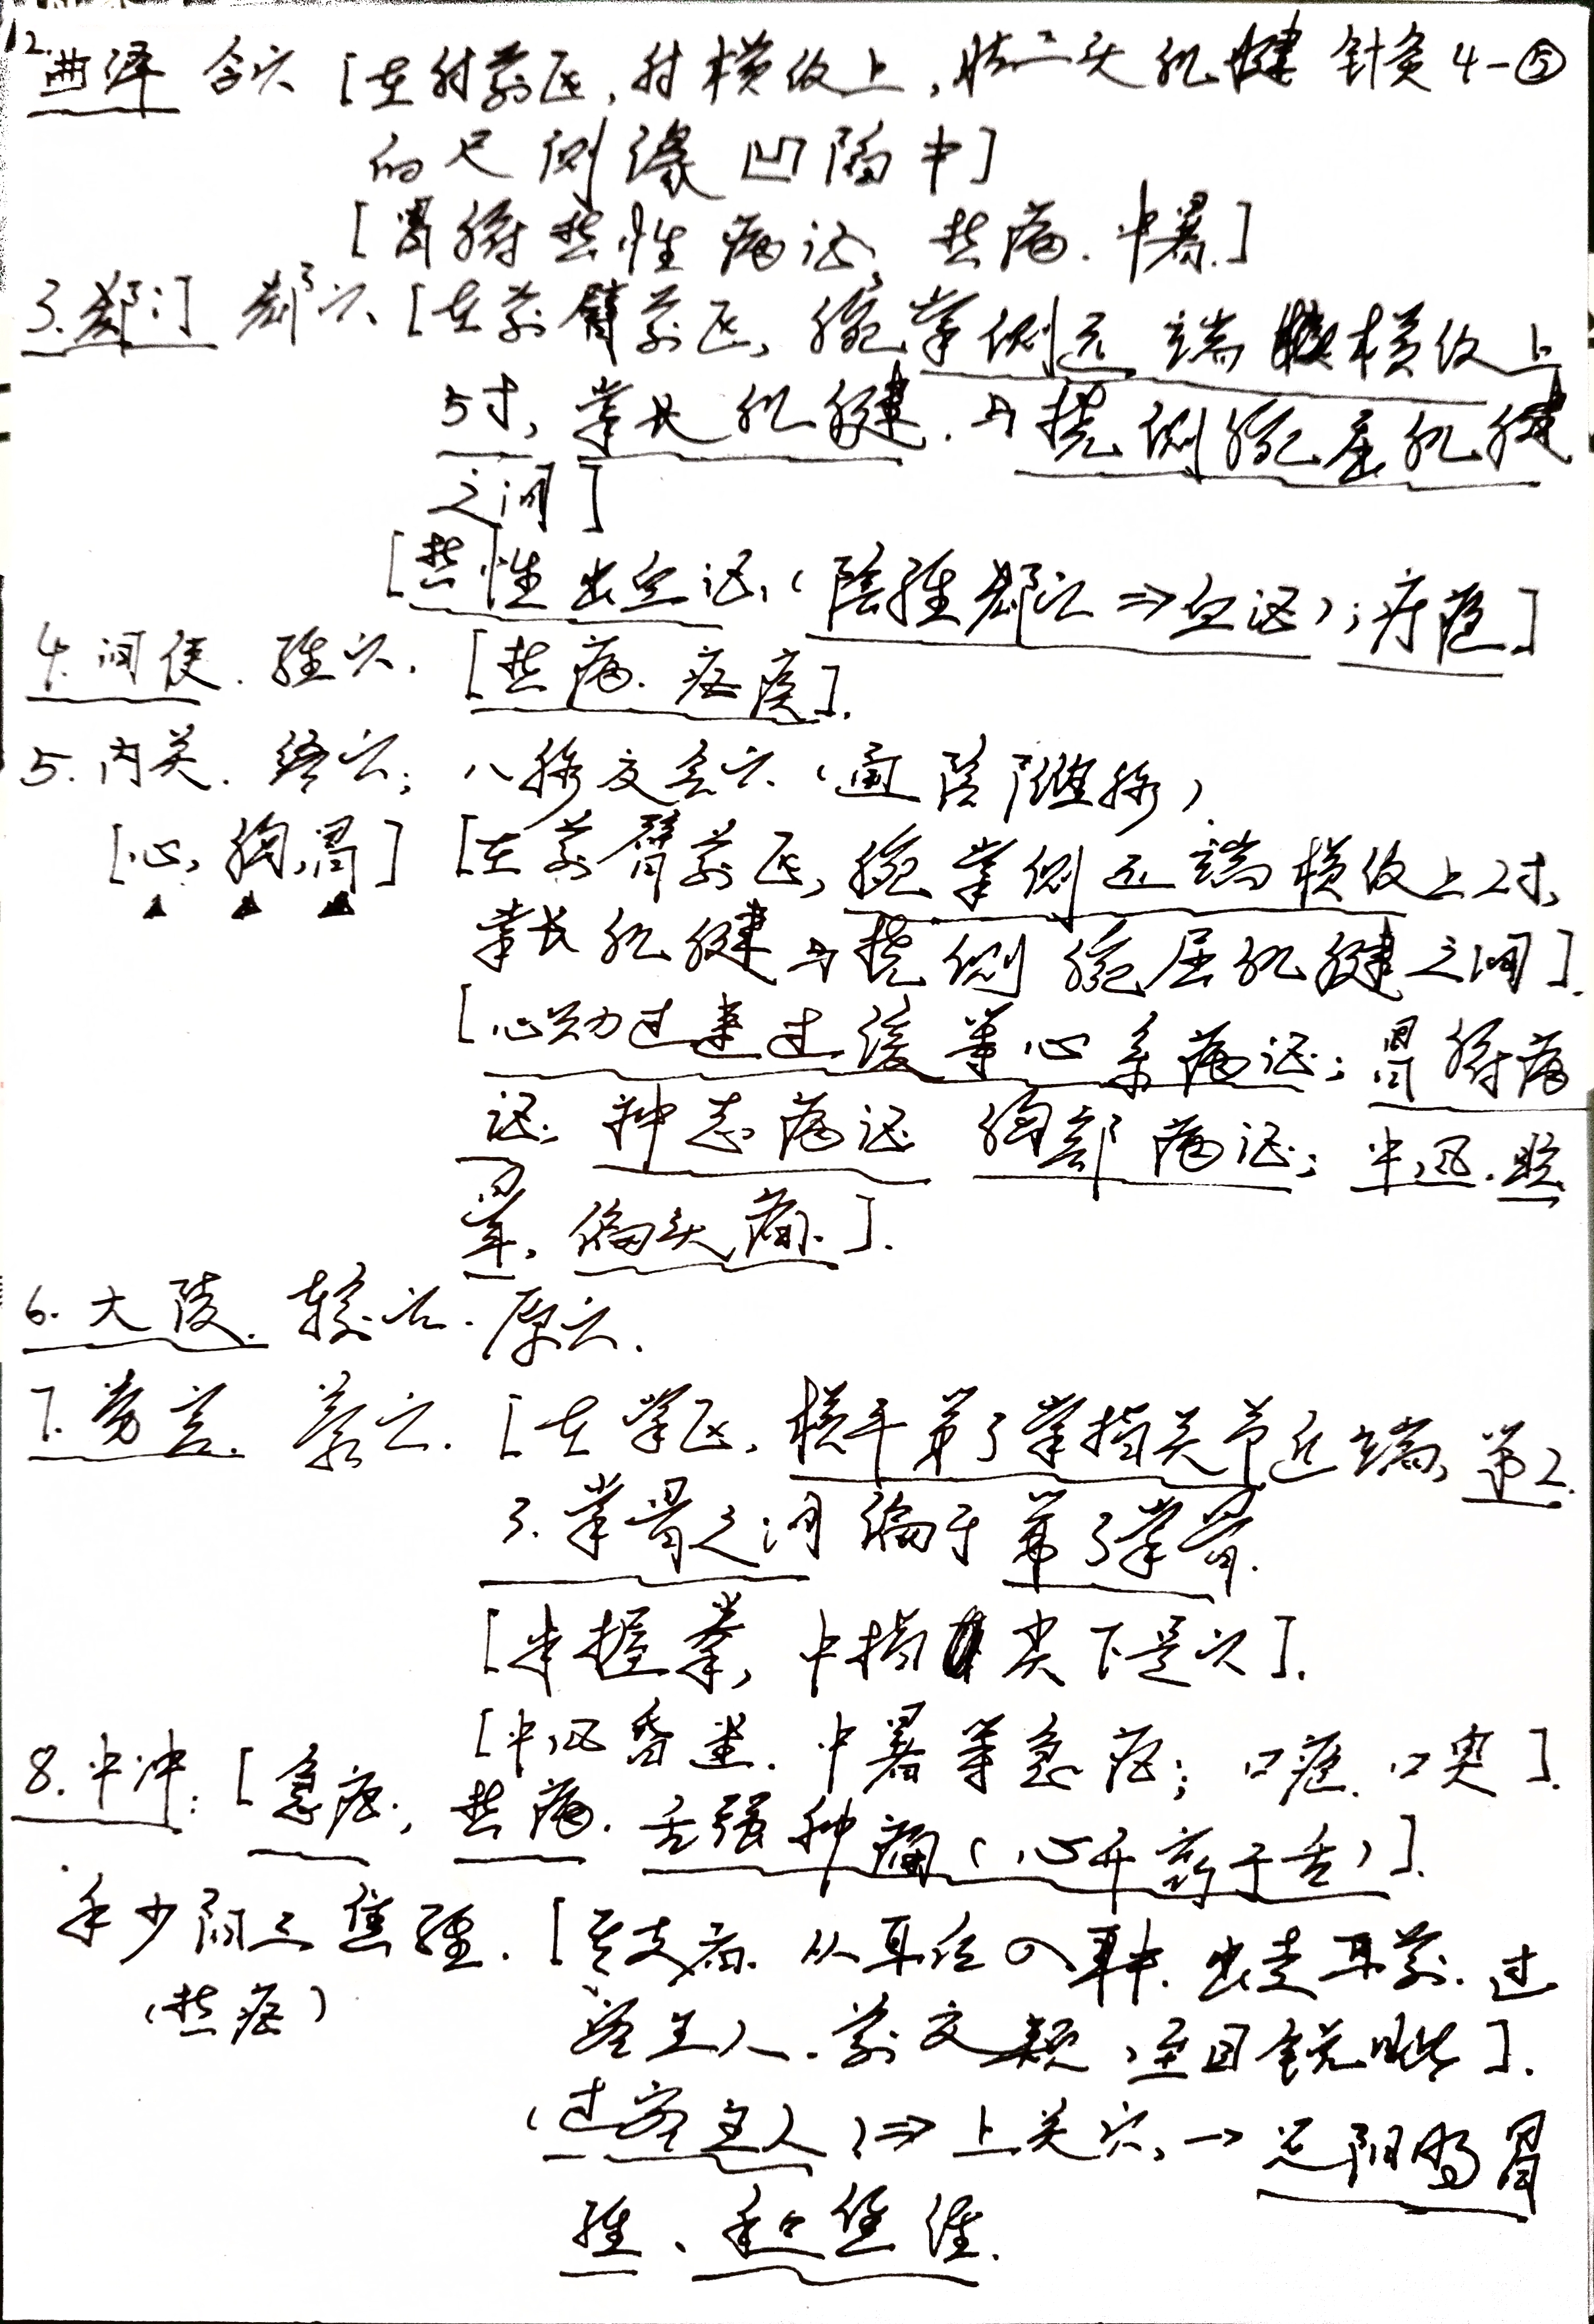 2.曲泽 合穴 [在肘前区,肘横纹上,肱二头肌腱 针灸4-⑤
的尺侧缘凹陷中]
[胃腑热性病证,热病.中暑.]
3.郄门 郄穴 [在前臂前区,腕掌侧远端横纹上
5寸,掌长肌腱.与桡侧腕屈肌腱
之间]
[热性出血证,(阴经郄穴⇒血证);疔疮]
4.间使.经穴. [热病.疟疾].
5.内关.络穴; 八脉交会穴(通阴维脉).
[心,胸,胃] [在前臂前区,腕掌侧远端横纹上2寸,
掌长肌腱与桡侧腕屈肌腱之间].
[心动过速过缓等心系病证;胃腑病
证;神志病证 胸部病证;中风.眩
晕,偏头痛.].
6.大陵.输穴.原穴.
7.劳宫.荥穴. [在掌区,横平第3掌指关节近端,第2.
3.掌骨之间偏于第3掌骨.
[半握拳,中指尖下是穴].
[中风昏迷.中暑等急症;口疮.口臭].
8.中冲: [急症.,热病.舌强肿痛(心开窍于舌)].
手少阳三焦经. [其支者.从耳后入耳中.出走耳前.过
(热症)
客主人.前交颊,至目锐眦].
(过客主人)⇒上关穴,→足阳明胃
经、和三焦经.